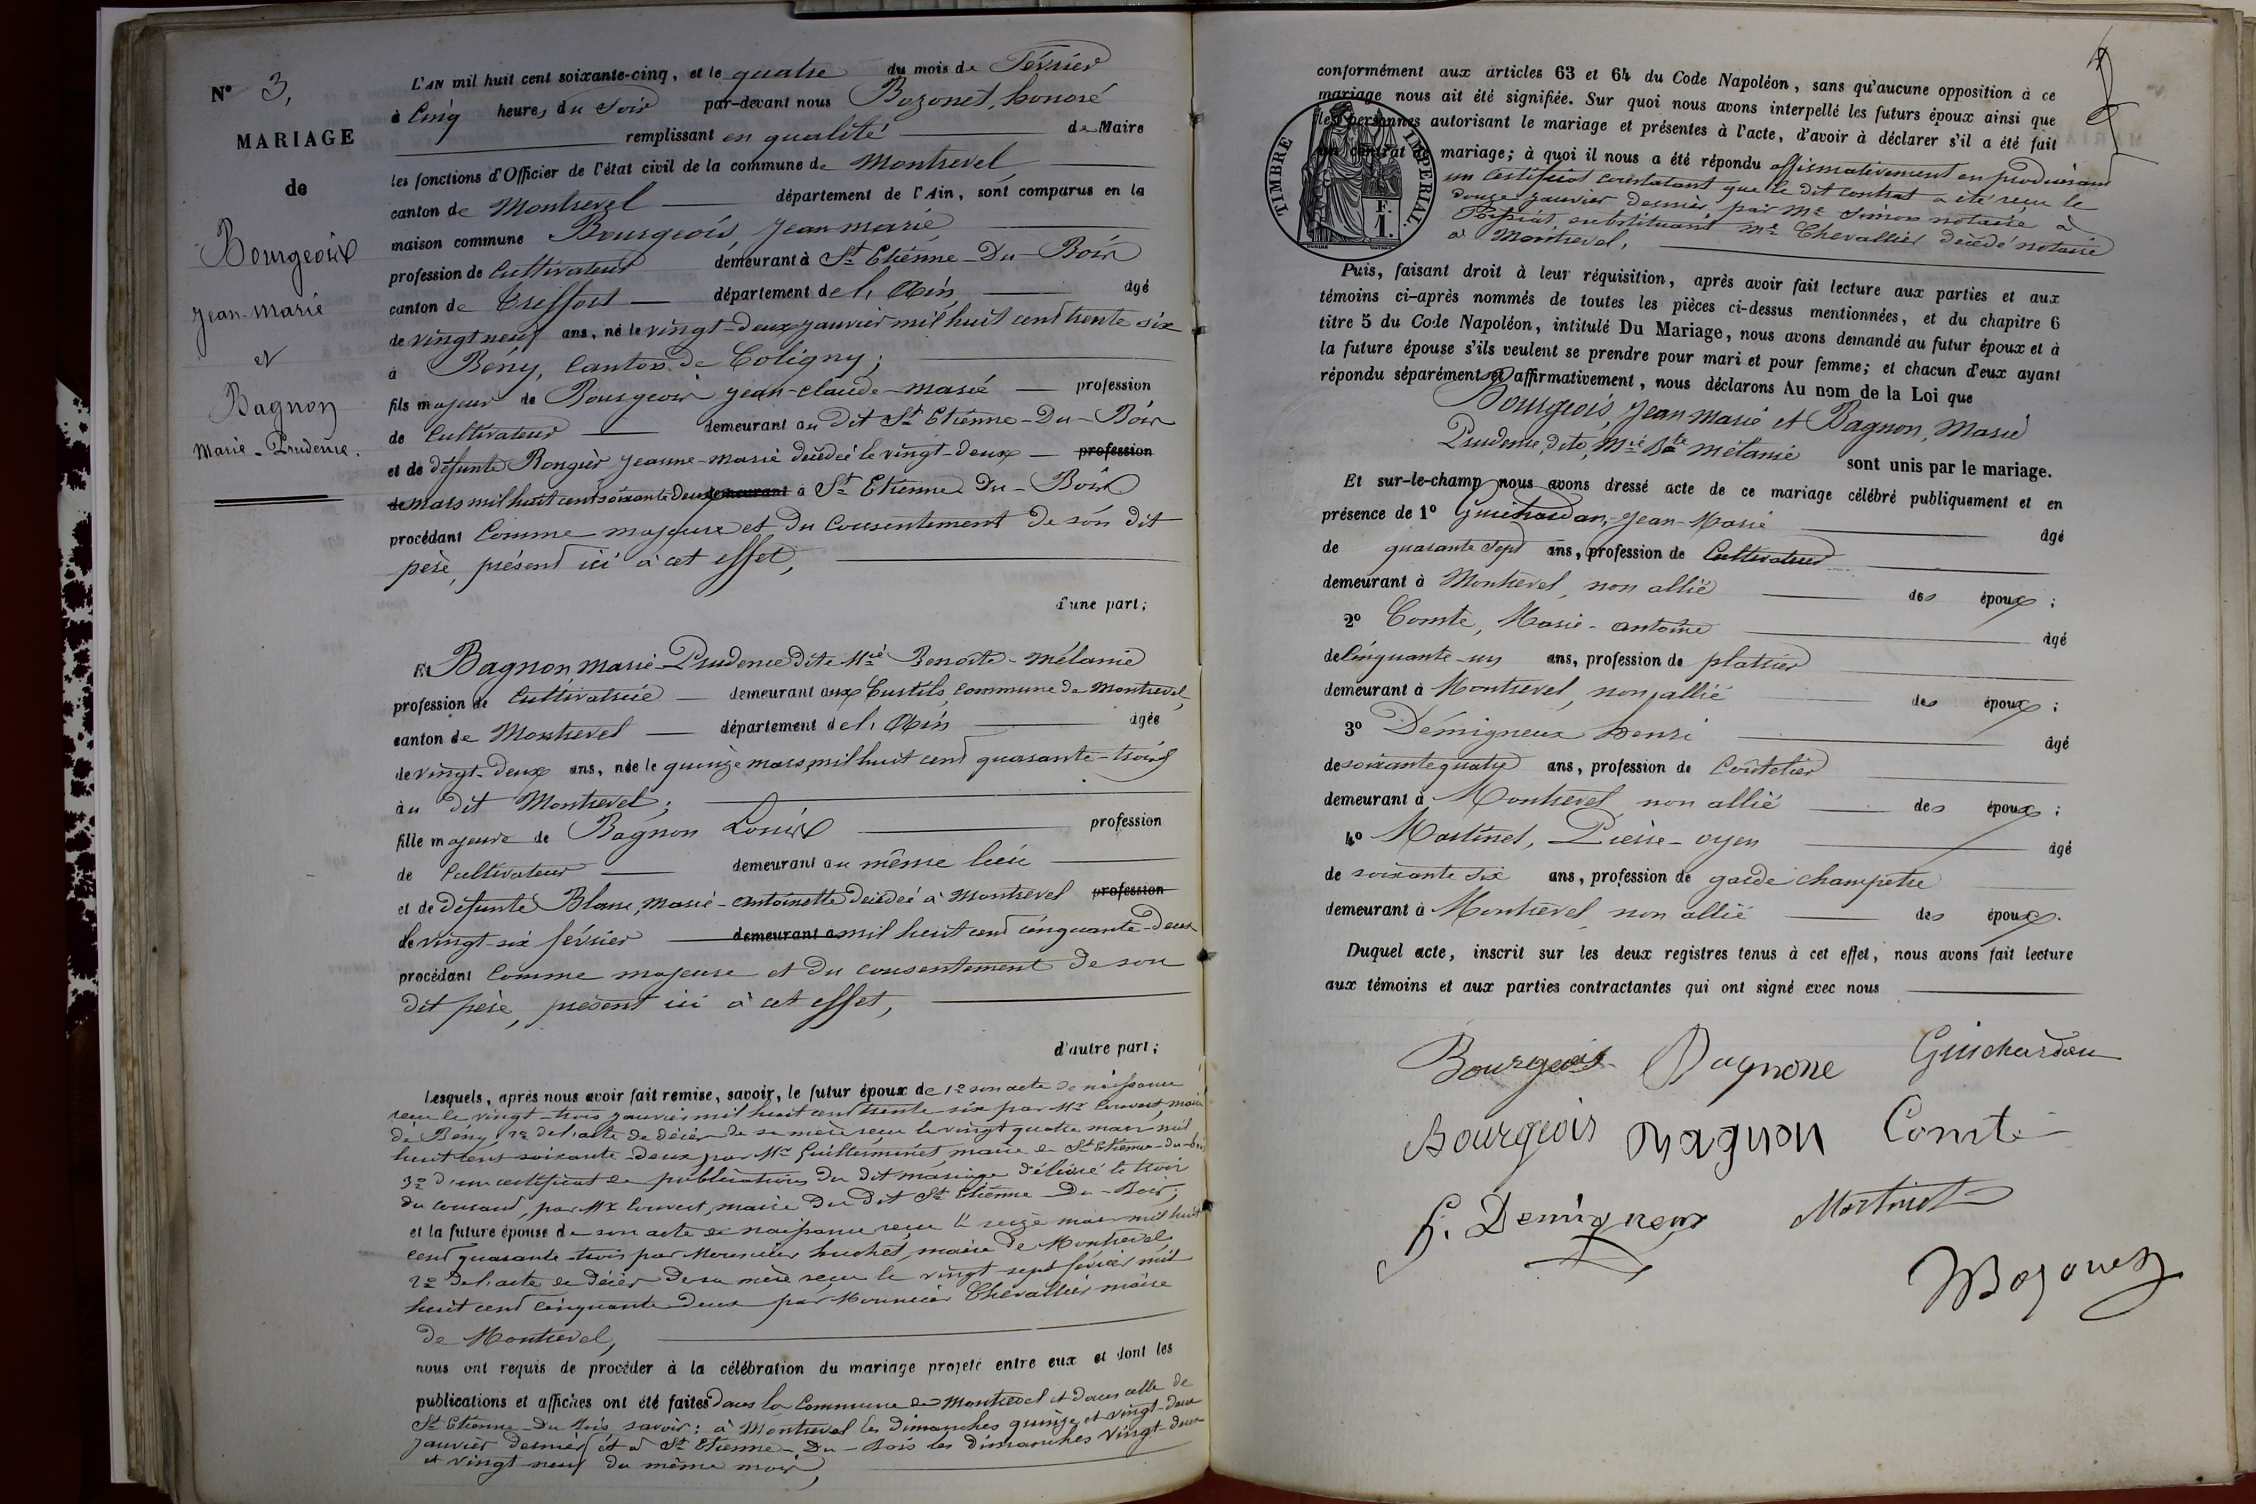 N° 3,
MARIAGE
de
Bourgeois
Jean-Marie
et
Bagnon
Marie-Prudence.
L'AN mil huit cent soixante-cinq, et le quatre du mois de Février
à Cinq heures du Soir par-devant nous Bozonet, honoré
remplissant en qualité de Maire
les fonctions d'Officier de l'état civil de la commune de Montrevel
canton de Montrevel département de l'Ain, sont comparus en la
maison commune Bourgeois, Jean-marie
profession de Cultivateur demeurant à St Etienne-Du-Bois
canton de Treffort département de l'Ain âgé
de vingt neuf ans, né le vingt-deux janvier mil huit cent trente six
à Bény, Canton de Coligny;
fils majeur de Bourgeois jean-claude-marie profession
de Cultivateur demeurant au Dit St Etienne-Du-Bois
et de défunte Rongier Jeanne-Marie décédée le vingt-deux profession
de mars mil huit cent soixante Deux demeurant à St Etienne Du-Bois
procédant Comme majeur et du Consentement de son dit
père, présent ici à cet effet,
d'une part;
Et Bagnon, Marie-Prudence dite Mie Benoite-Mélanie
profession de Cultivatrice demeurant aux Curtils, Commune de Montrevel,
canton de Montrevel département de l'Ain âgée
de vingt-Deux ans, née le quinze mars mil huit cent quarante-trois
au dit Montrevel;
fille majeure de Bagnon Louis profession
de Cultivateur demeurant au même lieu
et de défunte Blanc, Marie-Antoinette décédée à Montrevel profession
de vingt-six février demeurant à mil huit cent cinquante-Deux
procédant Comme majeure et du consentement de son
dit père, présent ici à cet effet,
d'autre part;
Lesquels, après nous avoir fait remise, savoir, le futur époux de 1° son acte de naissance
reçu le vingt-trois janvier mil huit cent trente six par Mr Convert, maire
de Bény, 2° de l'acte de décès de sa mère reçu le vingt quatre mars mil
huit cent soixante-deux par Mr Guillerminet, maire de St Etienne-du-bois
3° d'un certificat de publications du dit mariage délivré le trois
du courant, par Mr Convert, maire Du Dit St Etienne-Du-Bois;
et la future épouse de son acte de naissance reçu le seize mars mil huit
cent quarante-trois par Monsieur huchet, maire de Montrevel,
2° de l'acte de décès de sa mère reçu le vingt sept février mil
huit cent cinquante deux par Monsieur Chevallier maire
de Montrevel,
nous ont requis de procéder à la célébration du mariage projeté entre eux et dont les
publications et affiches ont été faites dans la Commune de Montrevel et dans celle de
St Etienne-Du-Bois, savoir: à Montrevel les dimanches quinze et vingt-deux
janvier dernier et à St Etienne-Du-Bois les dimanches vingt-deux
et vingt neuf du même mois,
conformément aux articles 63 et 64 du Code Napoléon, sans qu'aucune opposition à ce
mariage nous ait été signifiée. Sur quoi nous avons interpellé les futurs époux ainsi que
les personnes autorisant le mariage et présentes à l'acte, d'avoir à déclarer s'il a été fait
un contrat de mariage; à quoi il nous a été répondu affirmativement en produisant
un Certificat constatant que le dit contrat a été reçu le
douze janvier dernier, par Me Simon notaire à
substituant Me Chevallier décédé notaire
à Montrevel,
TIMBRE IMPERIAL.
F.
1.
Puis, faisant droit à leur réquisition, après avoir fait lecture aux parties et aux
témoins ci-après nommés de toutes les pièces ci-dessus mentionnées, et du chapitre 6
titre 5 du Code Napoléon, intitulé Du Mariage, nous avons demandé au futur époux et à
la future épouse s'ils veulent se prendre pour mari et pour femme; et chacun d'eux ayant
répondu séparément et affirmativement, nous déclarons Au nom de la Loi que
Bourgeois, Jean-Marie et Bagnon, Marie
Prudence, dite, Mie Bte Mélanie sont unis par le mariage.
Et sur-le-champ nous avons dressé acte de ce mariage célébré publiquement et en
présence de 1° Guichardan, Jean-Marie âgé
de quarante sept ans, profession de Cultivateur
demeurant à Montrevel, non allié des époux;
2° Comte, Marie-Antoine âgé
de Cinquante-un ans, profession de platrier
demeurant à Montrevel, non allié des époux;
3° Démigneux henri âgé
de soixante quatre ans, profession de Coutelier
demeurant à Montrevel non allié des époux;
4° Martinet, Pierre-oyen âgé
de soixante six ans, profession de garde champêtre
demeurant à Montrevel, non allié des époux.
Duquel acte, inscrit sur les deux registres tenus à cet effet, nous avons fait lecture
aux témoins et aux parties contractantes qui ont signé avec nous
Bourgeois Bagnone Guichardan
Bourgeois Bagnon Comte
h. Demigneux Martinet
Bozonet